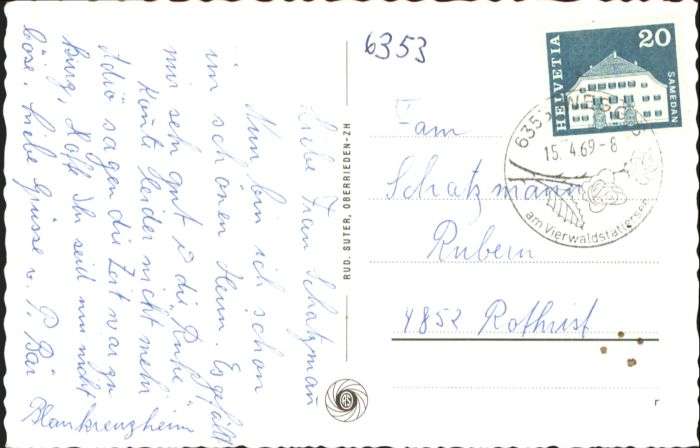 Liebe Frau Schatzman
Nun bin ich schon
im schönen Heim. Es gefällt
mir sehr gut & die Ruhe.
Konte Leider nicht mehr
Adiö sagen die Zeit war zu
Hoffe Ihr seid mir nicht
böse. Liebe Grüsse v. P. Bär
Blaukreuzheim
RUD. SUTER, OBERRIEDEN-ZH
6353
HELVETIA
20
SAMEDAN
6353 WEGGIS
15. 4.69-8
am Vierwaldstättersee
Fam
Schatzmann
Rubern
4852 Rothrist
r